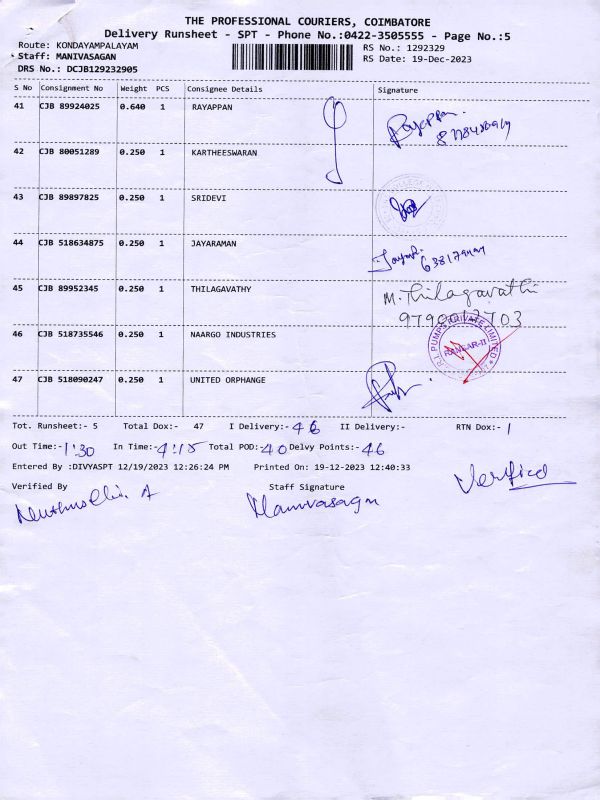 THE PROFESSIONAL COURIERS, COIMBATORE
Delivery Runsheet - SPT - Phone No.:0422-3505555 - Page No.:5
Route: KONDAYAMPALAYAM
RS No.: 1292329
Staff: MANIVASAGAN
RS Date: 19-Dec-2023
DRS No.: DCJB129232905
S No Consignment No Weight PCS Consignee Details Signature
41 CJB 89924025 0.640 1 RAYAPPAN Rayappan
42 CJB 80051289 0.250 1 KARTHEESWARAN
43 CJB 89897825 0.250 1 SRIDEVI
44 CJB 518634875 0.250 1 JAYARAMAN
45 CJB 89952345 0.250 1 THILAGAVATHY M. Thilagavathi
46 CJB 518735546 0.250 1 NAARGO INDUSTRIES
PUMPS PRIVATE LIMITED
47 CJB 518090247 0.250 1 UNITED ORPHANGE
Tot. Runsheet:- 5 Total Dox:- 47 I Delivery:- 46 II Delivery:- RTN Dox:- 1
Out Time:-1:30 In Time:-4:15 Total POD:-40 Delvy Points:-46
Entered By :DIVYASPT 12/19/2023 12:26:24 PM Printed On: 19-12-2023 12:40:33
Verified By Staff Signature Verified
Manivasagn